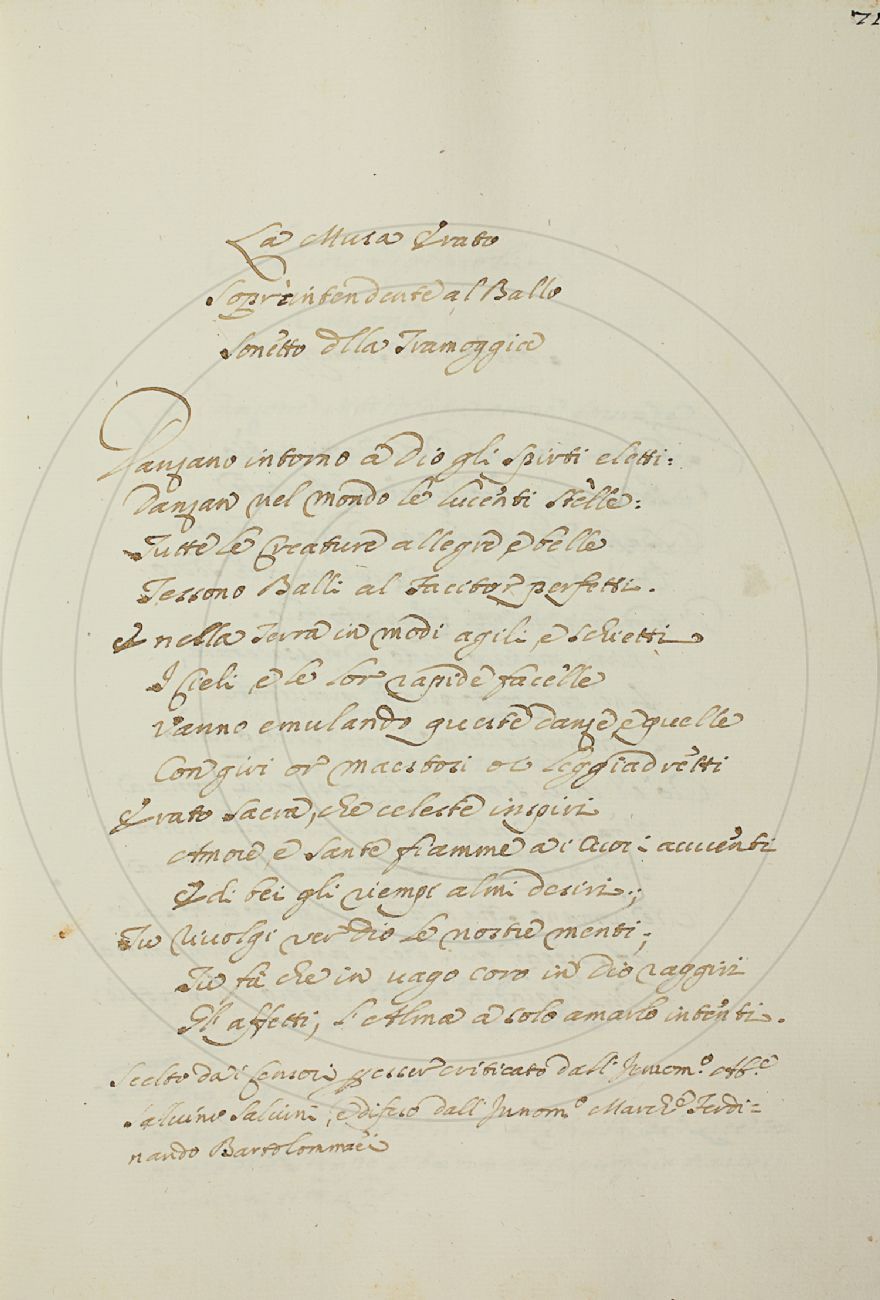 71
La Musa Erato
Soprintendente al Ballo
Sonetto dlla Tramoggia
Danzano intorno à Dio gli Spirti eletti:
Danzan nel mondo le lucenti Stelle:
Tutte le Creature allegre, e belle
Tessono Balli al Facitor perfetti.
E nella Terra in modi agili, e schietti
I Cieli, e le lor rapide facelle
Vanno emulando queste danze, e quelle
Con giri or maestosi or leggiadretti
Erato Sacra, che celeste inspiri
Amore, e sante fiamme a i Cuori accenti
E di bei gli riempi almi desiri;
Tu rivolgi ver Dio le nostre menti;
Tu fà che in vago coro in Dio raggiri
Gl'affetti, l'Alma a solo amarlo intenti.
Scelto da i Censori p esser criticato dall' Innom.º Ab.e
Salvino Salvini, e difeso dall' Innom.º March.e Ferdi=
nando Bartolommei